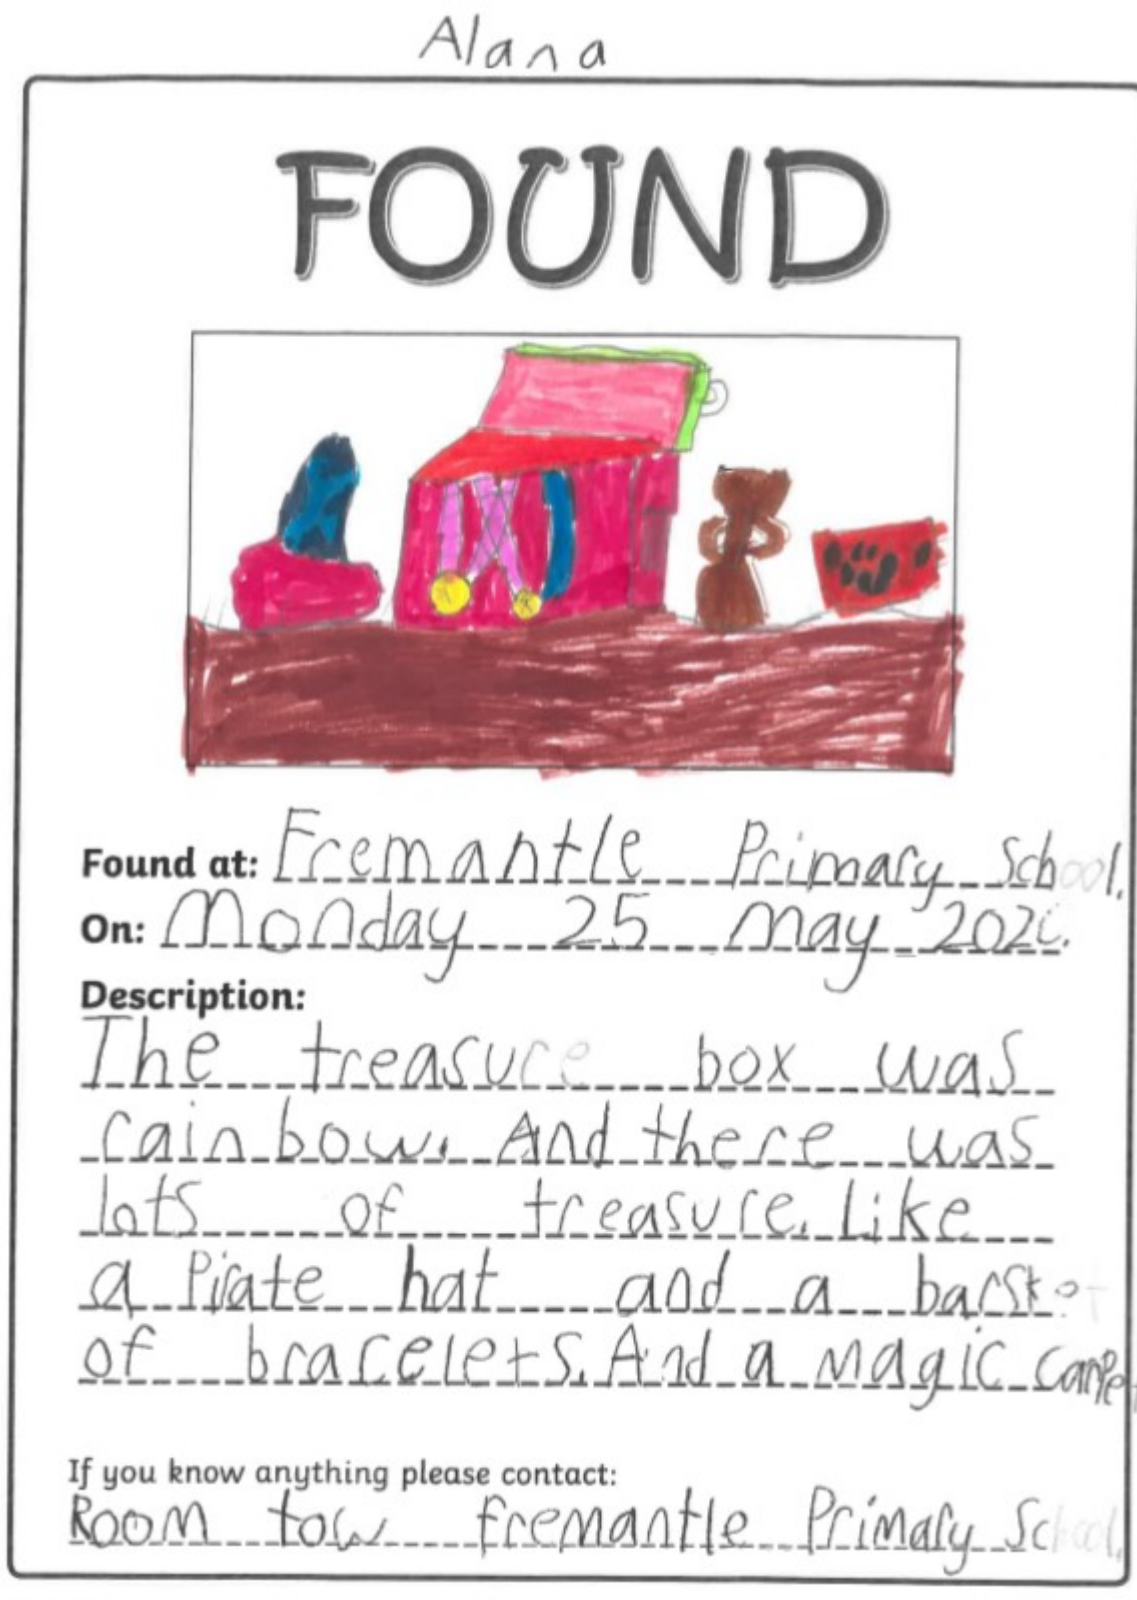 Alana
FOUND
Found at: Fremantle Primary School.
On: Monday 25 May 2020.
Description:
The treasure box was
rainbow. And there was
lots of treasure. Like
a Pirate hat and a barsket
of bracelets. And a magic carpet
If you know anything please contact:
Room tow fremantle Primary School.